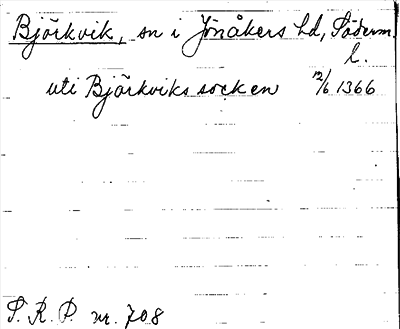 Björkvik, sn i Jönåkers hd, Söderm.
l.
uti Björkviks socken 12/6 1366
S. R. P. nr. 708